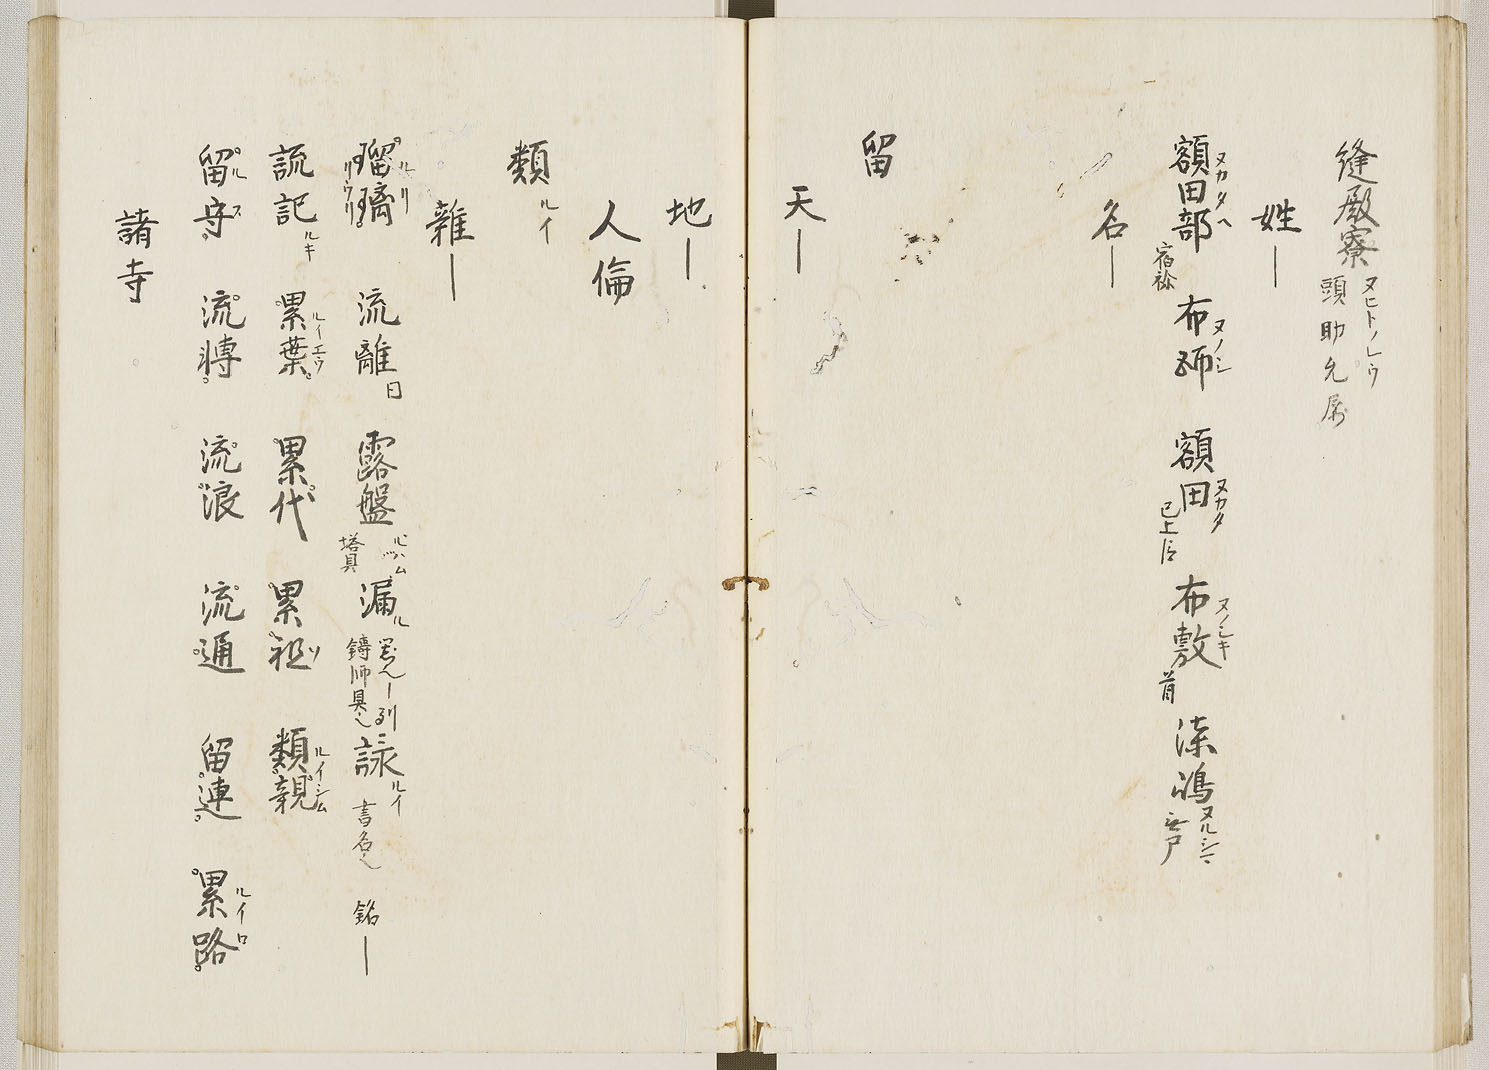 縫殿寮 ヌヒトノレウ 頭助允属
姓―
額田部 ヌカタヘ 宿祢 布師 ヌノシ 額田 ヌカタ 已上 布敷 ヌノシキ 首 漆嶋 ヌルシマ
名―
留
天―
地―
人倫
類 ルイ
雑―
瑠璃 ルリ リウリ 流離 日 露盤 塔具 漏 ル 鋳師具也 詠 ルイ 書名也 銘―
流記 ルキ 累葉 ルイエウ 累代 累祖 ソ 類親 ルイシム
留守 ルス 流轉 流浪 流通 留連 累路 ルイロ
諸寺